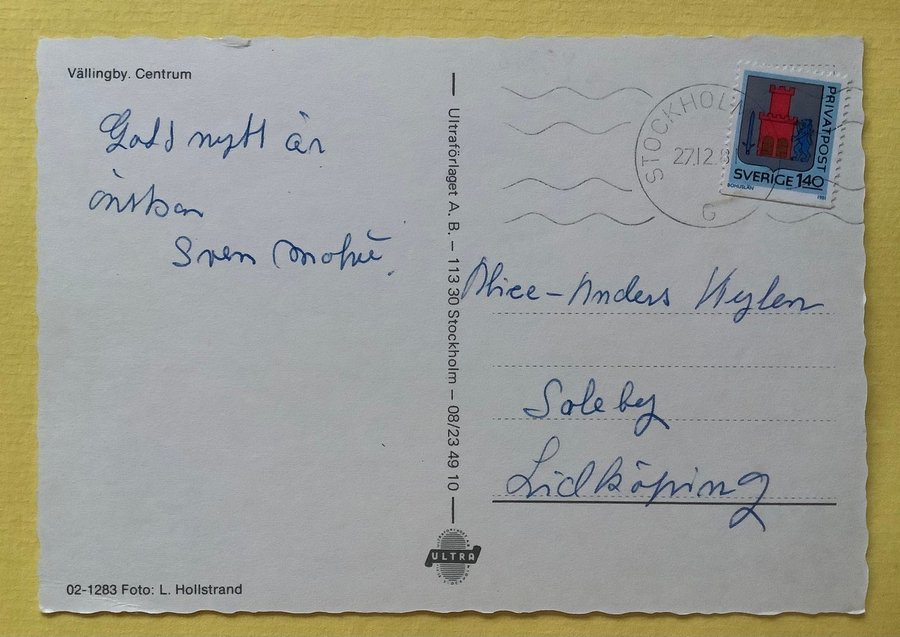 Vällingby. Centrum
Godd nytt år
önskar
Sven
Ultraförlaget A. B. – 113 30 Stockholm – 08/23 49 10
ULTRA
02-1283 Foto: L. Hollstrand
STOCKHOL
27.12.8
PRIVATPOST
SVERIGE 140
BOHUSLÄN
1981
Alice-Anders Hylen
Soleby
Lidköping